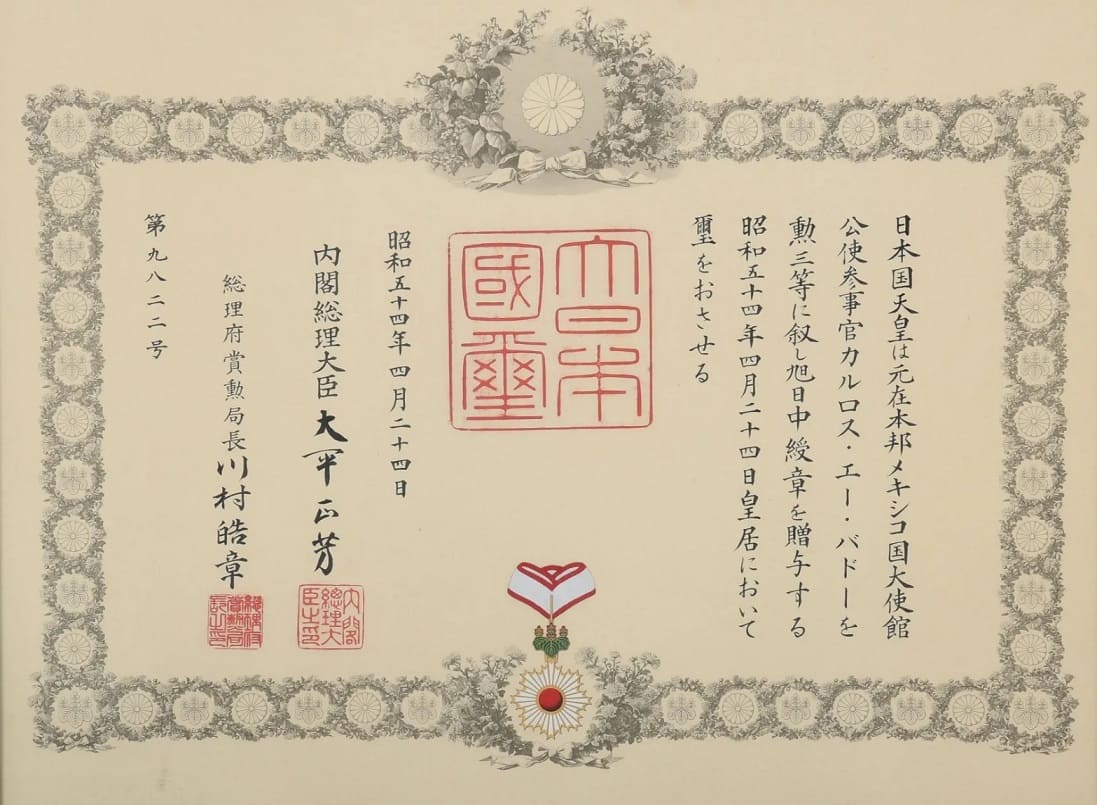 日本国天皇は元在本邦メキシコ国大使館
公使参事官カルロス・エー・バドーを
勲三等に叙し旭日中綬章を贈与する
昭和五十四年四月二十四日皇居において
璽をおさせる
大日本
國璽
昭和五十四年四月二十四日
内閣総理大臣 大平正芳
内閣
總理大
臣之印
総理府賞勲局長 川村皓章
總理府
賞勲局
長之印
第九八二二号